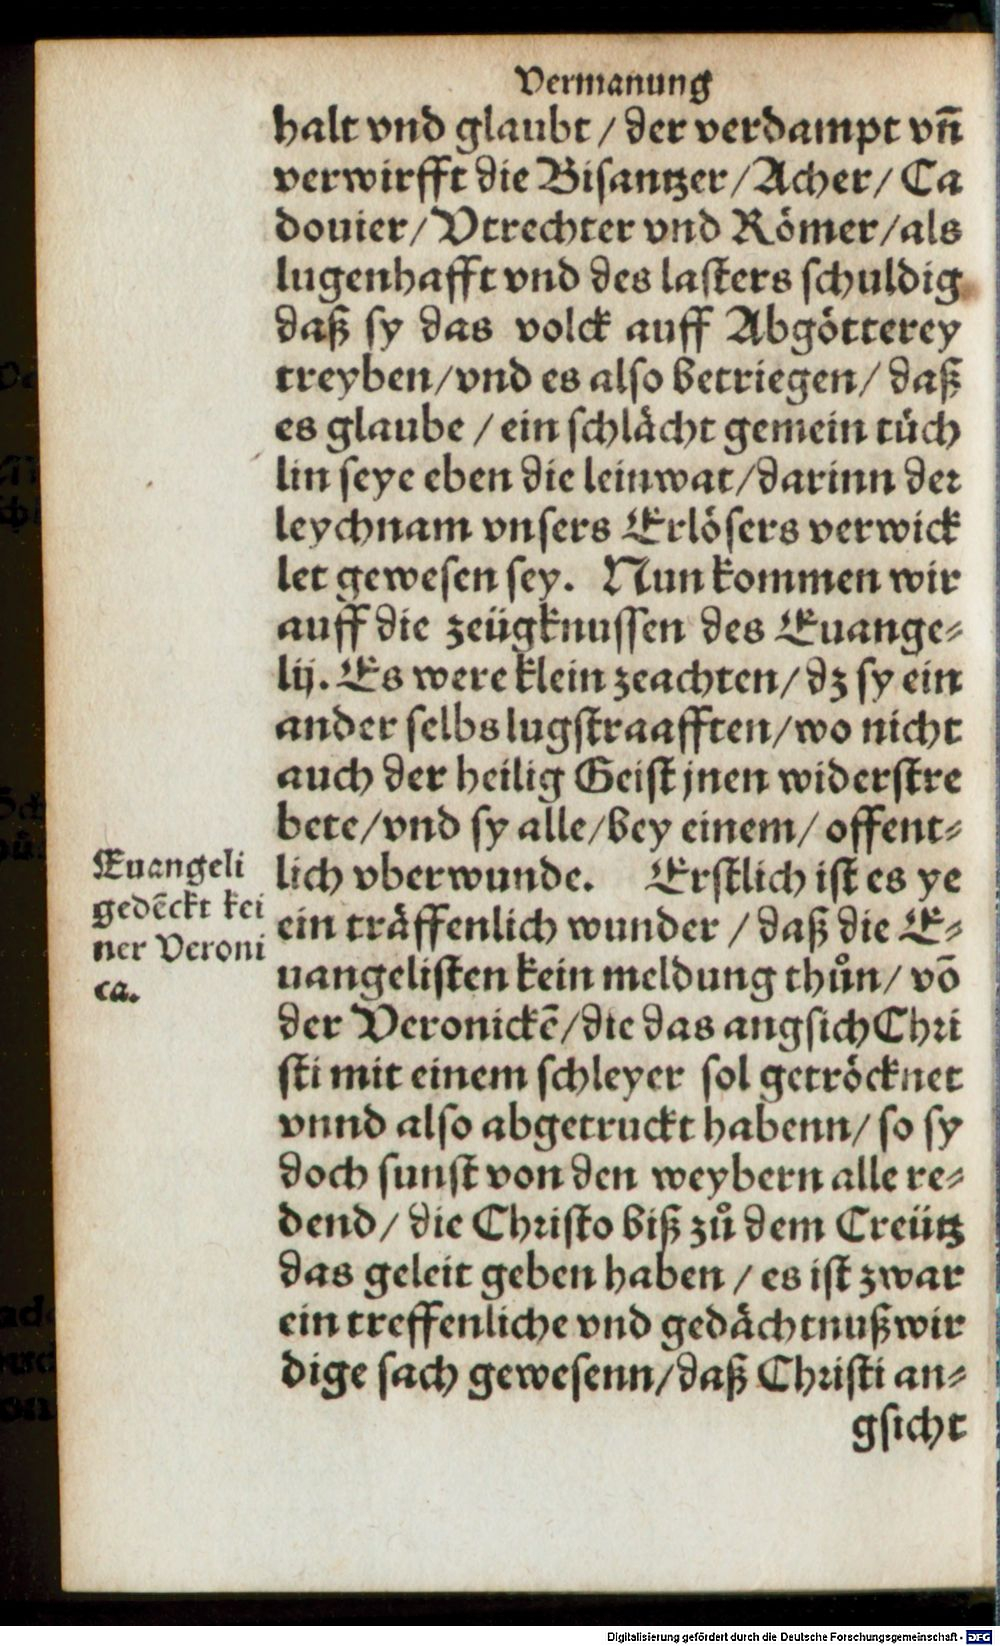 Vermanung
halt vnd glaubt / der verdampt vn̄
verwirfft die Bisantzer / Acher / Ca
douier / Vtrechter vnd Römer / als
lugenhafft vnd des lasters schuldig
daß sy das volck auff Abgötterey
treyben / vnd es also betriegen / daß
es glaube / ein schlächt gemein tüch
lin seye eben die leinwat / darinn der
leychnam vnsers Erlösers verwick
let gewesen sey. Nun kommen wir
auff die zeügknussen des Euange⸗
lij. Es were klein zeachten / dz sy ein
ander selbs lugstraafften / wo nicht
auch der heilig Geist jnen widerstre
bete / vnd sy alle / bey einem / offent⸗
lich vberwunde. Erstlich ist es ye
ein träffenlich wunder / daß die E⸗
uangelisten kein meldung thůn / vō
der Veronickē / die das angsich Chri
sti mit einem schleyer sol getröcknet
vnnd also abgetruckt habenn / so sy
doch sunst von den weybern alle re⸗
dend / die Christo biß zů dem Creütz
das geleit geben haben / es ist zwar
ein treffenliche vnd gedächtnuß wir
dige sach gewesenn / daß Christi an⸗
gsicht
Euangeli
gedēckt kei
ner Veroni
ca.
Digitalisierung gefördert durch die Deutsche Forschungsgemeinschaft - DFG